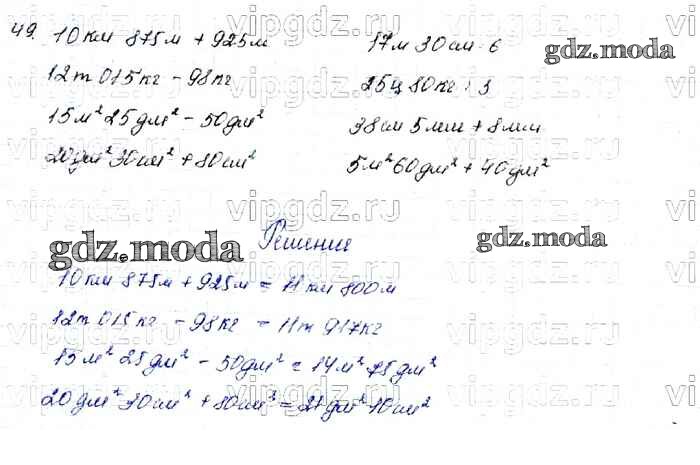 49. 10 км 875 м + 925 м
12 т 015 кг - 98 кг
15 м² 25 дм² - 50 дм²
20 дм² 30 см² + 80 см²
17 м 30 см · 6
25 ц 80 кг : 3
38 см 5 мм + 8 мм
5 м² 60 дм² + 40 дм²
Решение
10 км 875 м + 925 м = 11 км 800 м
12 т 015 кг - 98 кг = 11 т 917 кг
15 м² 25 дм² - 50 дм² = 14 м² 75 дм²
20 дм² 30 см² + 80 см² = 21 дм² 10 см²
gdz.moda
gdz.moda
gdz.moda
vipgdz.ru